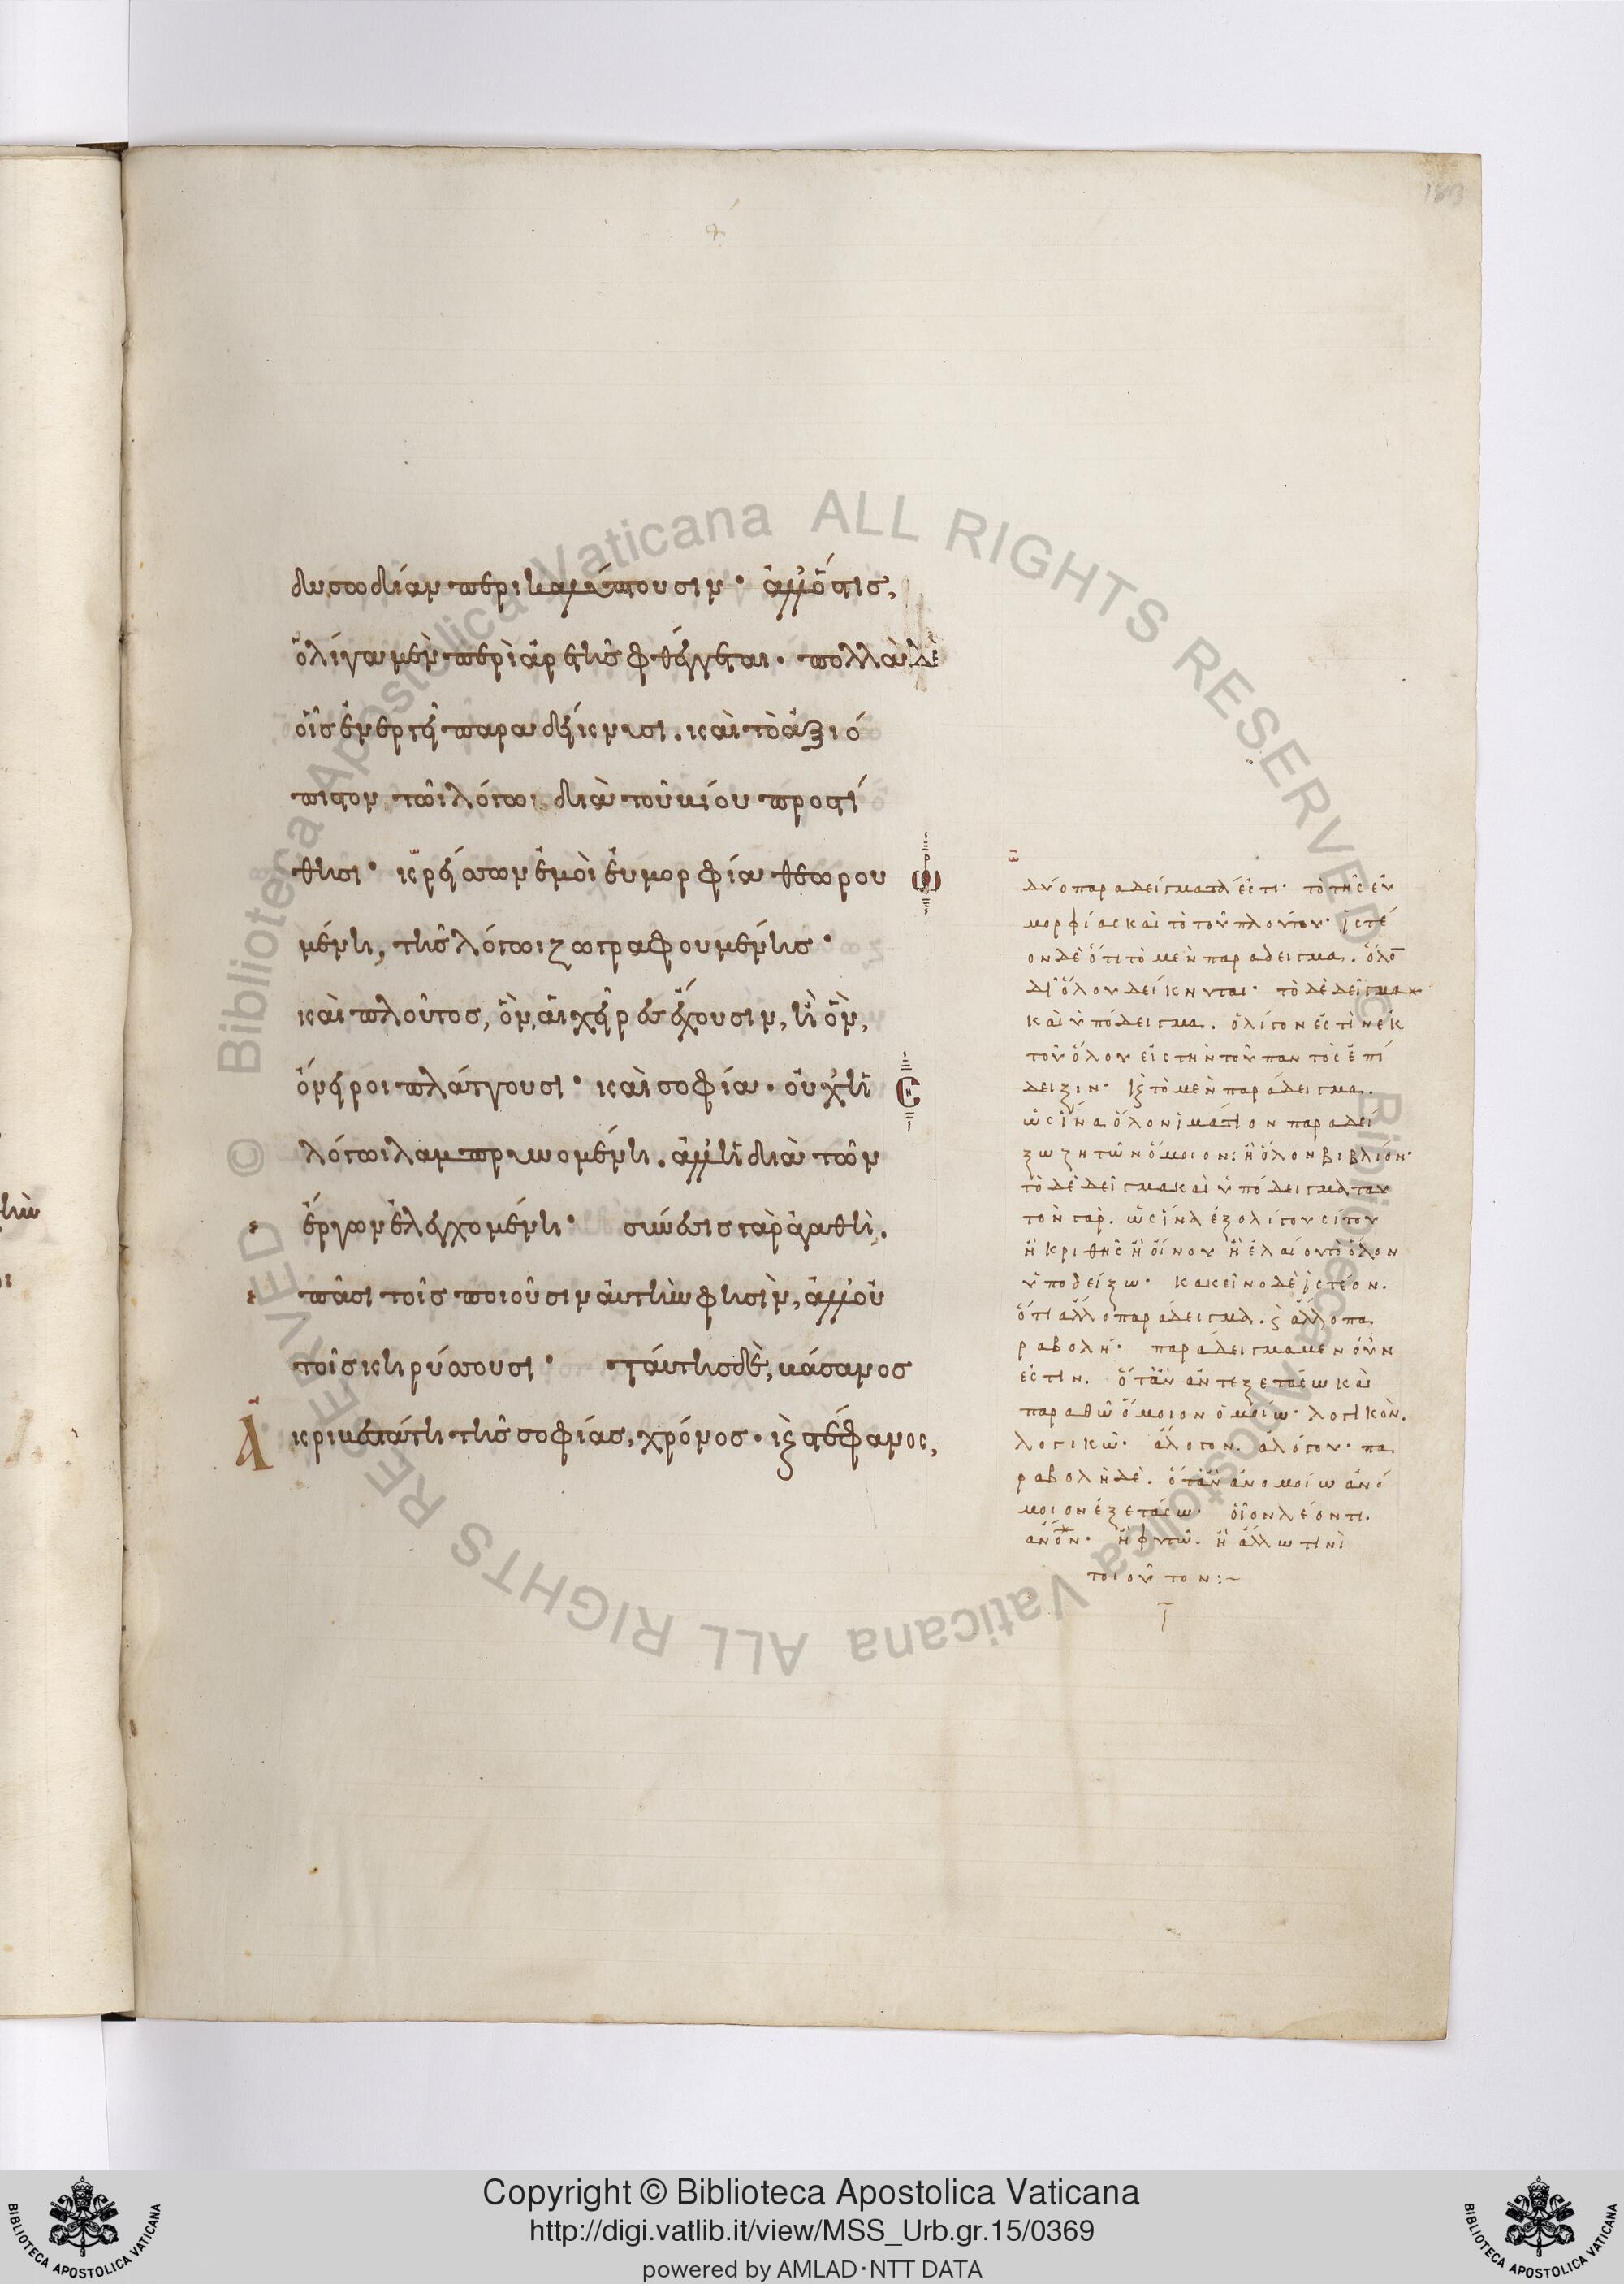 δυσωδίαν περικαλύπτουσιν· ἀλλ' ὅστις,
ὀλίγα μὲν περὶ ἀρετῆς φθέγγεται· πολλὰ δὲ
οἷς ἐνεργεῖ παραδείκνυσι. καὶ τὸ ἀξιό
πιστον τῶι λόγωι διὰ τοῦ βίου προστί
θησι· κρείσσων ἐμοὶ εὐμορφία θεωρου
μένη, τῆς λόγωι ζωγραφουμένης·
καὶ πλοῦτος, ὃν, αἱ χεῖρες ἔχουσιν, ἢ ὃν,
ὄνειροι πλάττουσι· καὶ σοφία· οὐχ ἡ
λόγωι λαμπρυνομένη. ἀλλ' ἡ διὰ τῶν
ἔργων ἐλεγχομένη· σύνεσις γὰρ ἀγαθὴ,
πᾶσι τοῖς ποιοῦσιν αὐτὴν φησὶν, ἀλλ' οὐ
τοῖς κηρύσσουσι· ταύτης δὲ, βάσανος
ἀκριβεστάτη τῆς σοφίας, χρόνος· καὶ στέφανος,
δύο παραδείγματά ἐστι· τὸ τῆς εὐ
μορφίας καὶ τὸ τοῦ πλούτου· ἰστέ
ον δὲ ὅτι τὸ μὲν παράδειγμα. ὅλον
δι' ὅλου δείκνυται· τὸ δὲ δεῖγμα
καὶ ὑπόδειγμα. ὀλίγον ἐστὶν ἐκ
τοῦ ὅλου εἰς τὴν τοῦ παντὸς ἐπί
δειξιν· καὶ τὸ μὲν παράδειγμα.
ὡς ἵνα ὅλον ἱμάτιον παραδεί
ξω ζητῶν ὅμοιον: ἢ ὅλον βιβλίον·
τὸ δὲ δεῖγμα καὶ ὑπόδειγμα ταυ
τὸν γάρ. ὡς ἵνα ἐξ ὀλίγου σίτου
ἢ κριθῆς ἢ οἴνου ἢ ἐλαίου τὸ ὅλον
ὑποδείξω· κακεῖνο δὲ ἰστέον.
ὅτι ἄλλο παράδειγμα. καὶ ἄλλο πα
ραβολή· παράδειγμα μὲν οὖν
ἐστιν. ὅταν ἀντεξετάσω καὶ
παραθῶ ὅμοιον ὁμοίω· λογικὸν.
λογικῶ· ἄλογον. ἀλόγου· πα
ραβολὴ δὲ. ὅταν ἀνομοίω ἀνό
μοιον ἐξετάσω· οἷον λέοντι.
ἀνον· ἢ φυτῶ. ἢ ἄλλω τινὶ
τοιοῦτον:~
Copyright © Biblioteca Apostolica Vaticana
http://digi.vatlib.it/view/MSS_Urb.gr.15/0369
powered by AMLAD·NTT DATA